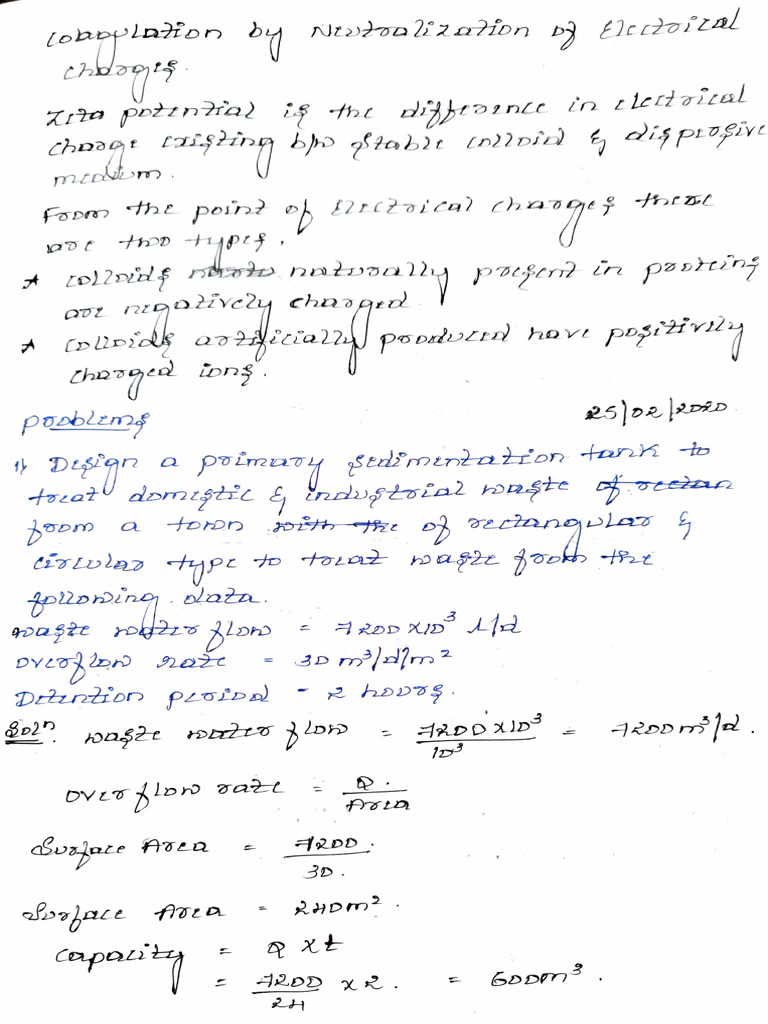 Coagulation by Neutralization of Electrical
charges.
Zeta potential is the difference in electrical
charge existing b/w stable colloid & disprosive
medium.
From the point of Electrical charges there
are two types.
* colloids naturally present in proteins
are negatively charged.
* colloids artificially produced have positively
charged ions.
25/02/2020
Problems
1) Design a primary sedimentation tank to
treat domestic & industrial waste of rectan
from a town with the of rectangular &
circular type to treat waste from the
following data.
waste water flow = 7200 x 10³ l/d
overflow rate = 30 m³/d/m²
Detention period - 2 hours.
Solⁿ. waste water flow = 7200 x 10³ / 10³ = 7200 m³/d.
overflow rate = Q. / Area
Surface Area = 7200. / 30.
Surface Area = 240m².
capacity = Q x t
= 7200 / 24 x 2. = 600m³.